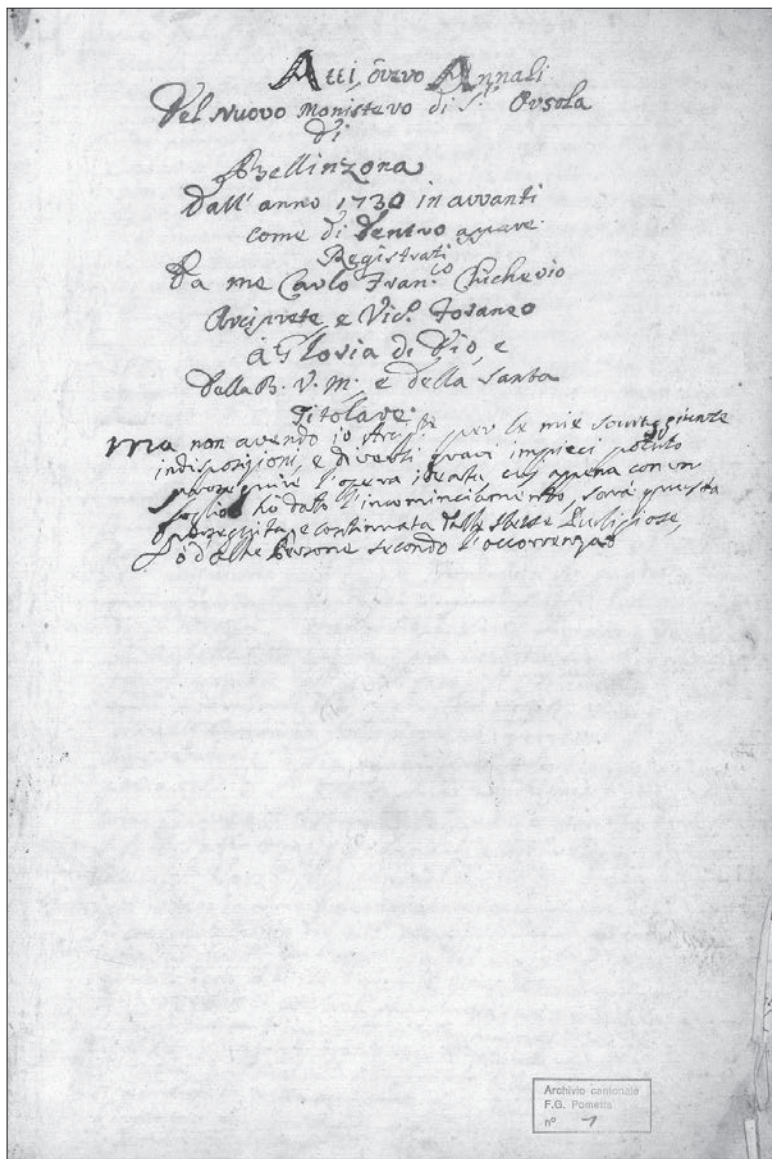 Atti, overo Annali
Del Nuovo Monistero di S.ta Orsola
di
Bellinzona
Dall' anno 1730 in avvanti
come di dentro appare.
Registrati
Da me Carlo Fran.co Chicherio
Arciprete e Vic.o Foraneo
à Gloria di Dio, e
Della B. V. M., e della Santa
Titolare.
Ma non avendo io per le mie
indisposizioni, e diversi gravi impieci potuto
proseguire l'opera ideata, cui appena con un
foglio hò dato l'incominciamento, sarà questa
proseguita, e continuata dalle stesse Religiose,
ò d'altre Persone secondo l'occorrenza
Archivio cantonale
F.G. Pometta
n° 1